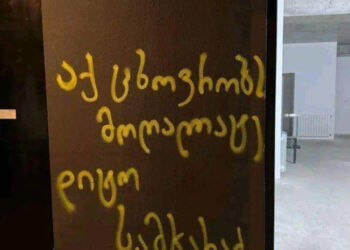 აქ ცხოვრობს
მოღალატე
დიტო
სამხარაძ